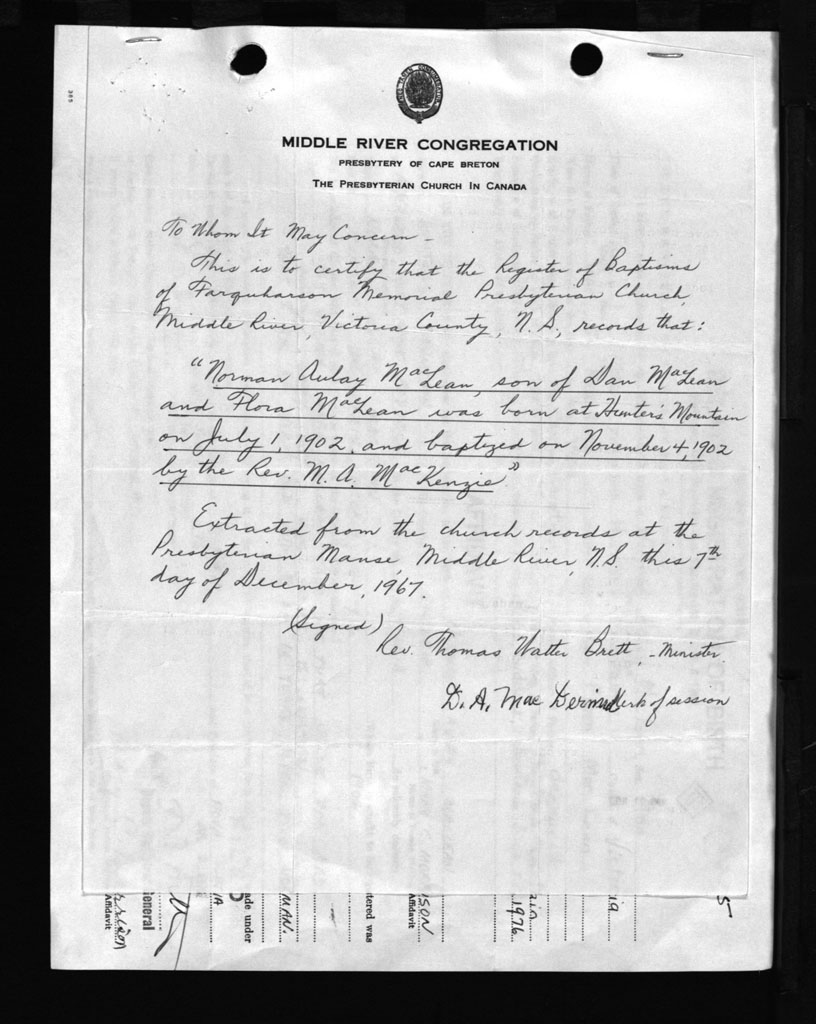 MIDDLE RIVER CONGREGATION
PRESBYTERY OF CAPE BRETON
THE PRESBYTERIAN CHURCH IN CANADA
To Whom It May Concern -
This is to certify that the Register of Baptisms
of Farquharson Memorial Presbyterian Church,
Middle River, Victoria County, N.S., records that:
"Norman Aulay MacLean, son of Dan MacLean
and Flora MacLean was born at Hunter's Mountain
on July 1, 1902, and baptized on November 4, 1902
by the Rev. M. A. MacKenzie"
Extracted from the church records at the
Presbyterian Manse, Middle River, N.S. this 7th
day of December, 1967.
(Signed)
Rev. Thomas Walter Brett, - Minister
D. A. Mac Dermid Clerk of session
Affidavit
General
ade under
MAN.
tered was
ISON
Affidavit
1976
5